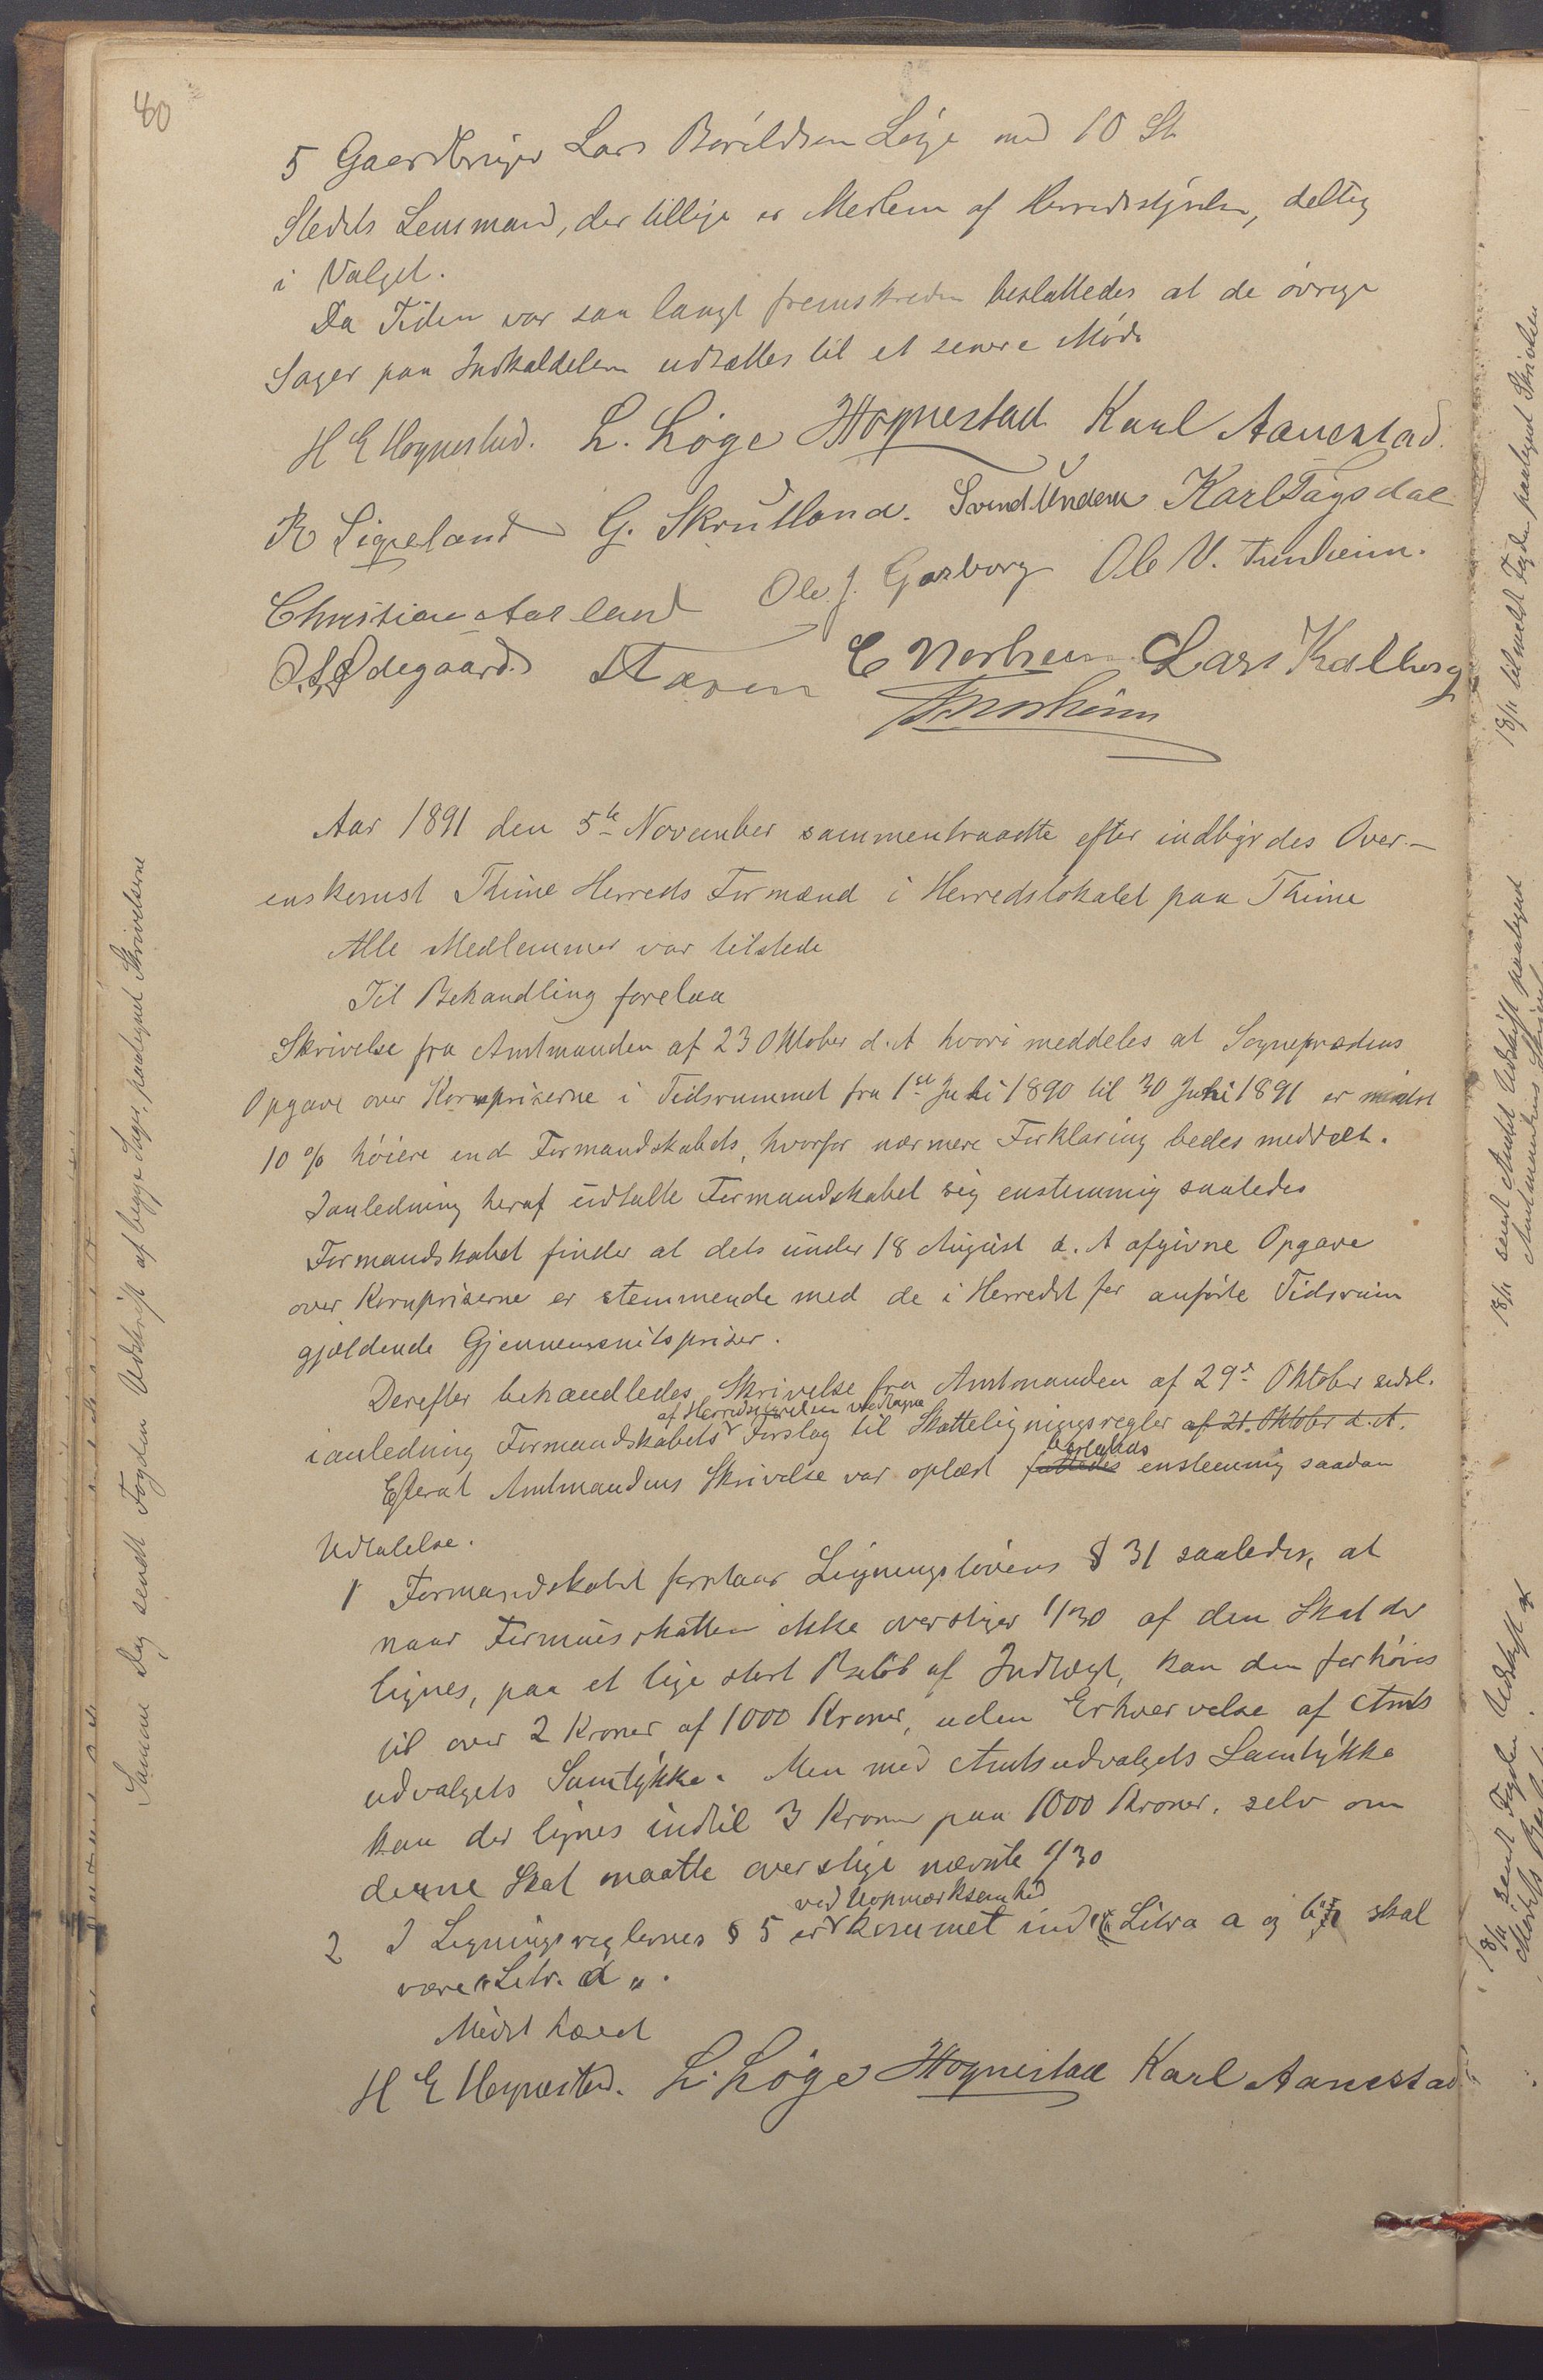 80
5 Gaardbruger Lars Boreldsen Löge med 10 St
Stedets Lensmand, der tillige er Medlem af Herredsstyrelsen, deltog
i Valget.
Da Tiden var saa langt fremskreden besluttedes at de övrige
Sager paa Indkaldelsen udsættes til et senere Möde
H E Hognestad. L. Löge Hognestad Karl Aanestad.
R Ligeland G. Skrudland. Svend Undem Karl Taxsdal
Christian Aasland Ole. J. Garborg Ole V. Tunheim.
O. S. Ødegaard. Aaren E Norheim Lars Kalberg
Norheim
Aar 1891 den 5te November sammentraadte efter indbyrdes Over-
enskomst Thime Herreds Formænd i Herredslokalet paa Thime
Alle Medlemmer var tilstede
Til Behandling forelaa
Skrivelse fra Amtmanden af 23 Oktober d. A hvori meddeles at Sognepræstens
Opgave over Kornpriserne i Tidsrummet fra 1ste Juli 1890 til 30 Juni 1891 er mindst
10 % höiere end Formandskabets, hvorfor nærmere Forklaring bedes meddelt.
Ianledning heraf udtalte Formandskabet sig enstemmig saaledes
Formandskabet finder at dets under 18 August d. A afgivne Opgave
over Kornpriserne er stemmende med de i Herredet for anförte Tidsrum
gjældende Gjennemsnitspriser.
Derefter behandledes Skrivelse fra Amtmanden af 29de Oktober sidstl.
af Herredsstyrelsen vedtagne
ianledning Formandskabets Forslag til Skatteligningsregler af 21. Oktober d. A.
besluttedes
Efterat Amtmandens Skrivelse var oplæst fattedes enstemmig saadan
Udtalelse.
1 Formandskabet forstaar Ligningslovens § 31 saaledes, at
naar Formuesskatten ikke overstiger 1/30 af den Skat der
lignes, paa et lige stort Belöb af Indtægt, kan den forhöies
til over 2 Kroner af 1000 Kroner, uden Erhvervelse af Amts
udvalgets Samtykke. Men med Amtsudvalgets Samtykke
kan der lignes indtil 3 Kroner paa 1000 Kroner, selv om
denne Skat maatte overstige nævnte 1/30
ved Uopmærksomhed
2 I Ligningsreglernes § 5 er kommet ind "Litra a og b" skal
være "Litr. d".
Mödet hævet
H E Hognestad. L. Löge Hognestad Karl Aanestad
Samme Dag sendt Fogden Udskrift af begge Sager, paategnet Skrivelserne
18/11 tilmeldt Fogden paategnet Skrivelsen
18/11 sendt Amtet Udskrift paategnet
Amtmandens Skrivelse
18/11 sendt Fogden Udskrift af